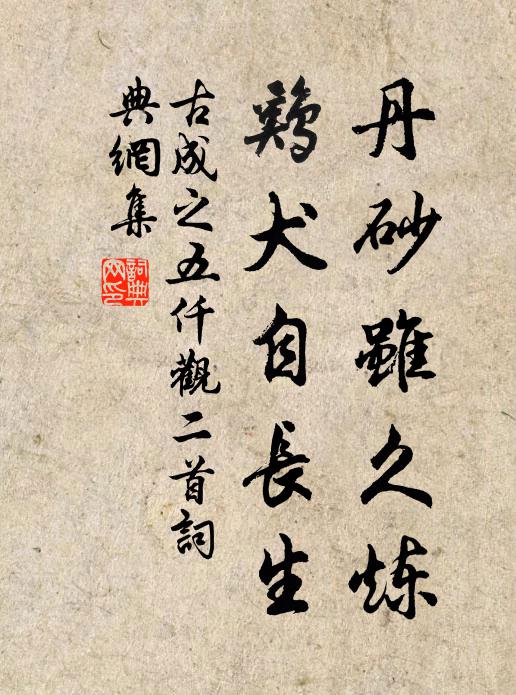 丹砂雖久炼
鷄犬自長生
古成之五仟觀二首詞
典網集
詞典
网印